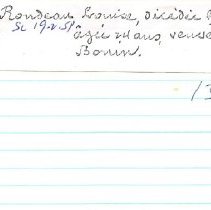 Rondeau Louise, décédée
Sc 19-2-51
âgée ans, veuve
Bonin.